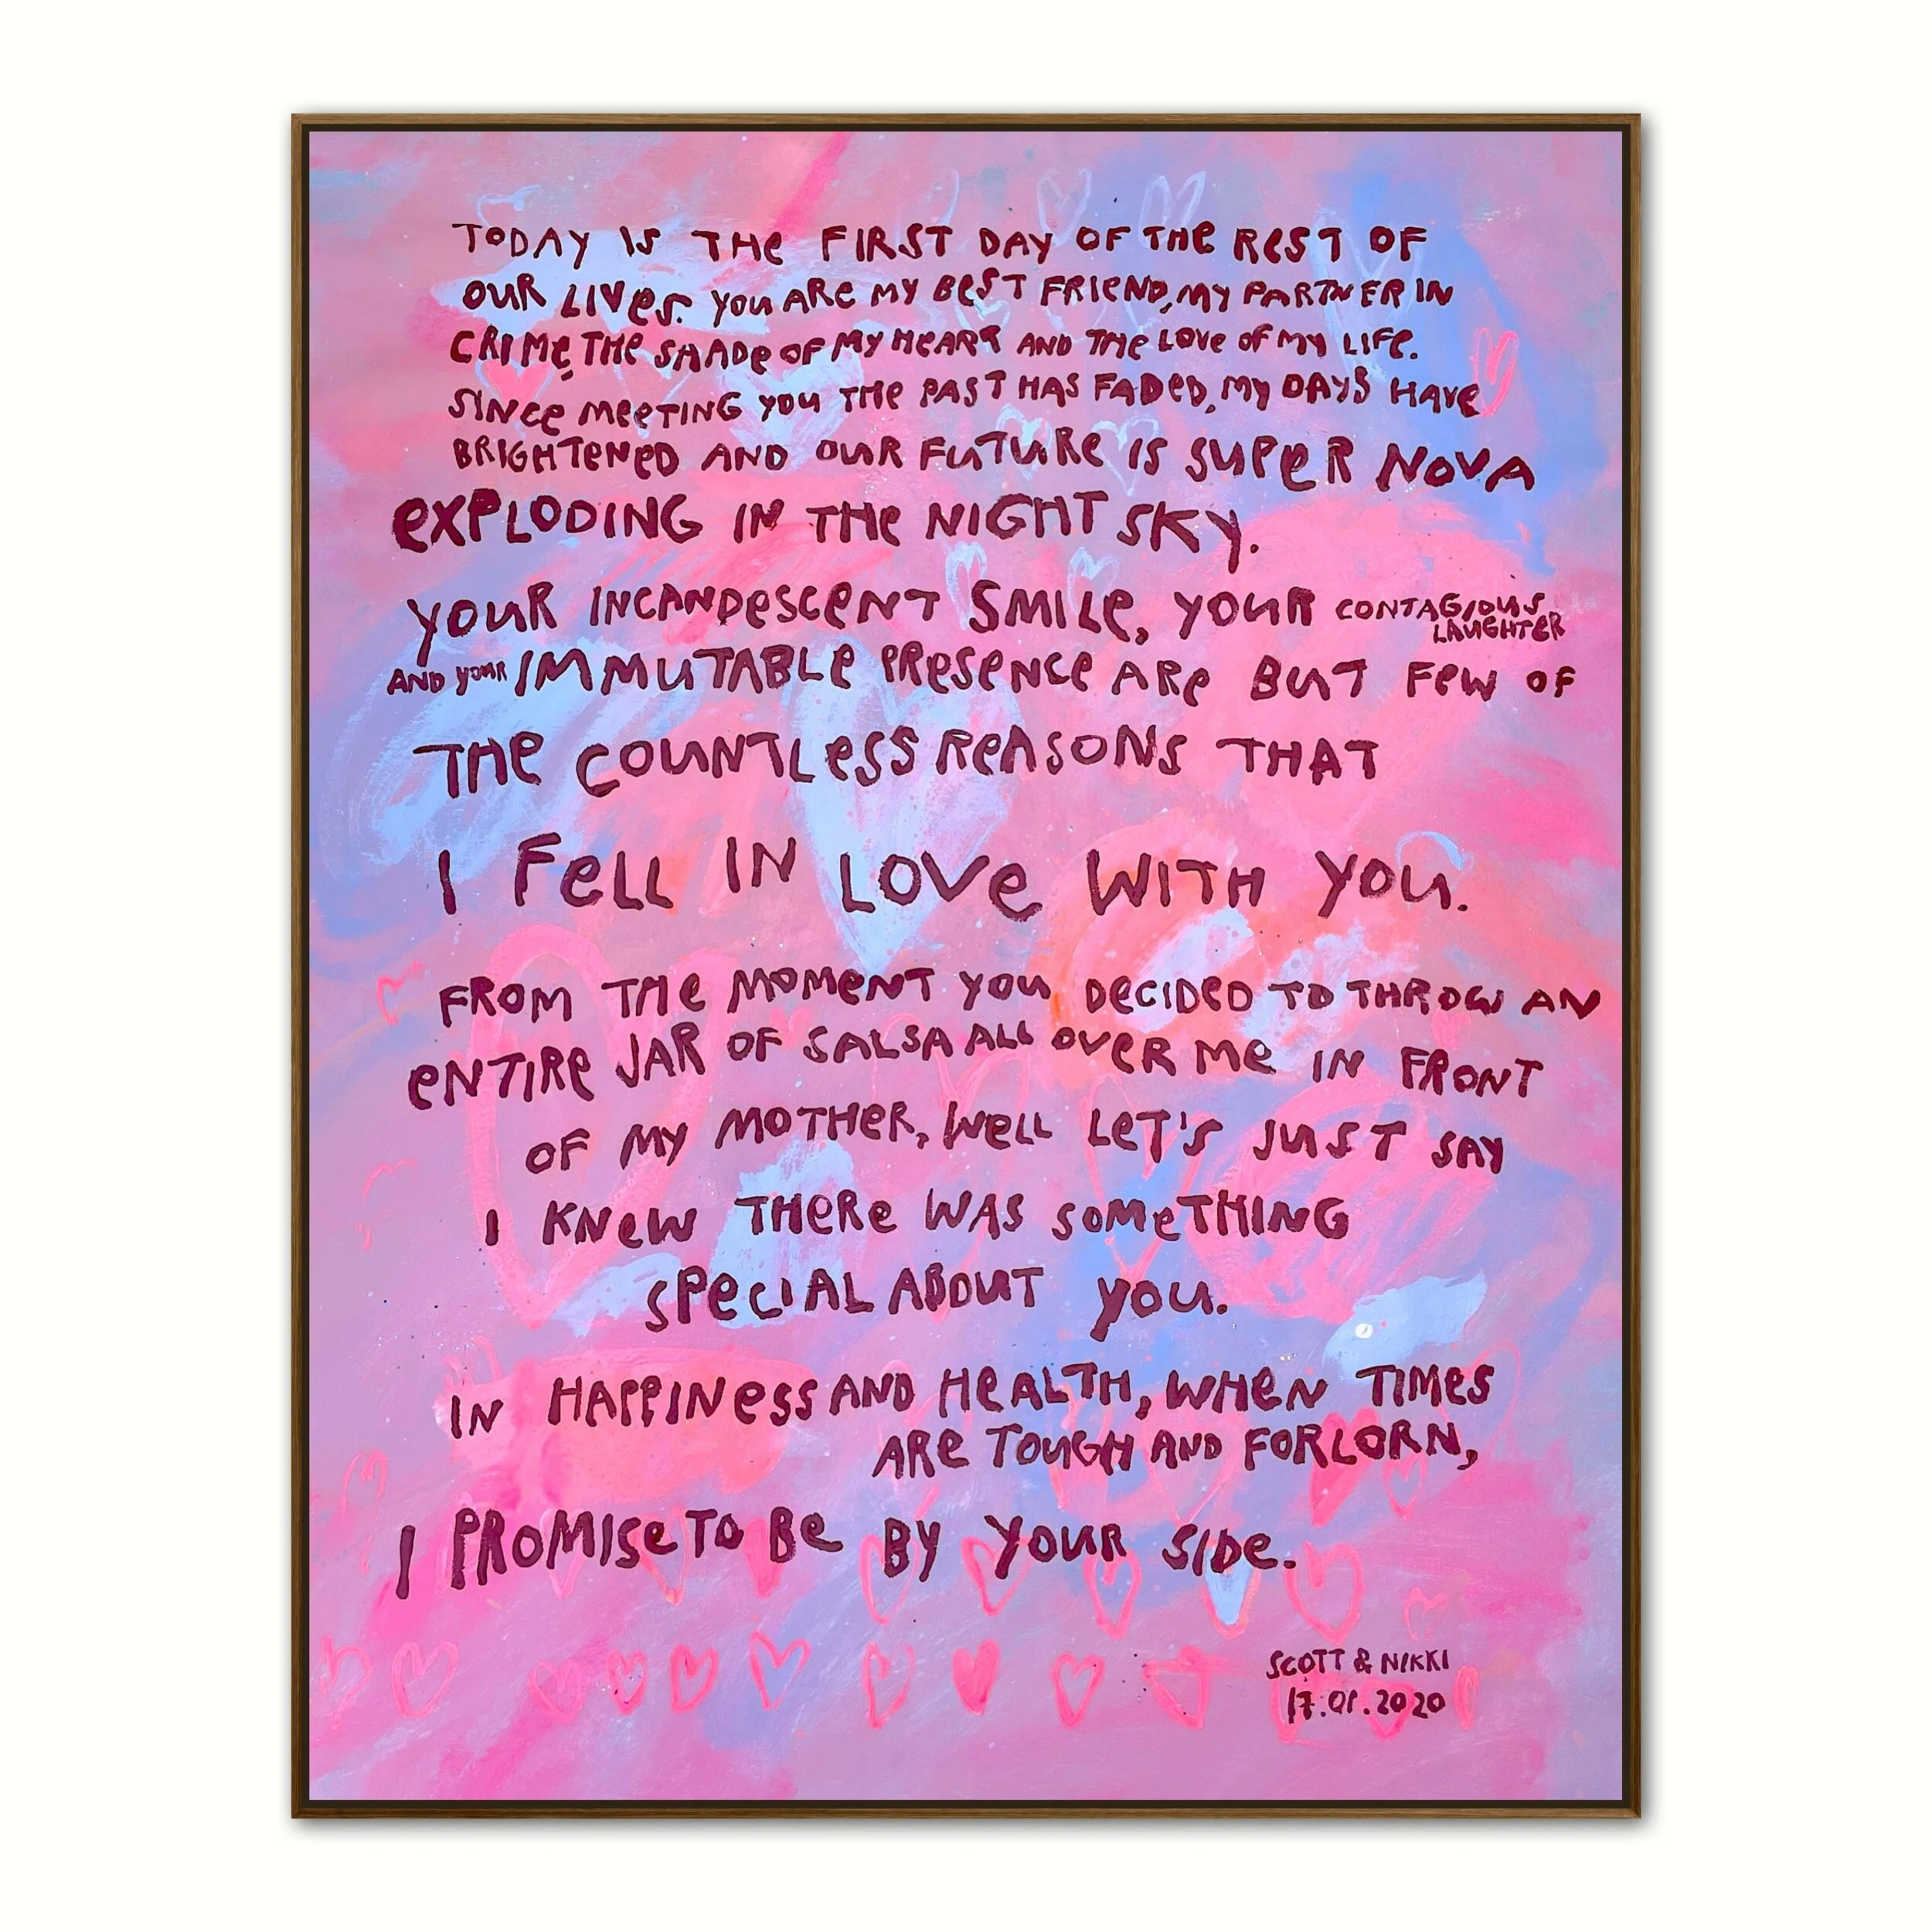 TODAY IS THE FIRST DAY OF THE REST OF
OUR LIVES. YOU ARE MY BEST FRIEND, MY PARTNER IN
CRIME, THE SHADE OF MY HEART AND THE LOVE OF MY LIFE.
SINCE MEETING YOU THE PAST HAS FADED, MY DAYS HAVE
BRIGHTENED AND OUR FUTURE IS SUPER NOVA
EXPLODING IN THE NIGHT SKY.
YOUR INCANDESCENT SMILE, YOUR CONTAGIOUS
LAUGHTER
AND YOUR IMMUTABLE PRESENCE ARE BUT FEW OF
THE COUNTLESS REASONS THAT
I FELL IN LOVE WITH YOU.
FROM THE MOMENT YOU DECIDED TO THROW AN
ENTIRE JAR OF SALSA ALL OVER ME IN FRONT
OF MY MOTHER, WELL LET'S JUST SAY
I KNEW THERE WAS SOMETHING
SPECIAL ABOUT YOU.
IN HAPPINESS AND HEALTH, WHEN TIMES
ARE TOUGH AND FORLORN,
I PROMISE TO BE BY YOUR SIDE.
SCOTT & NIKKI
17.01.2020